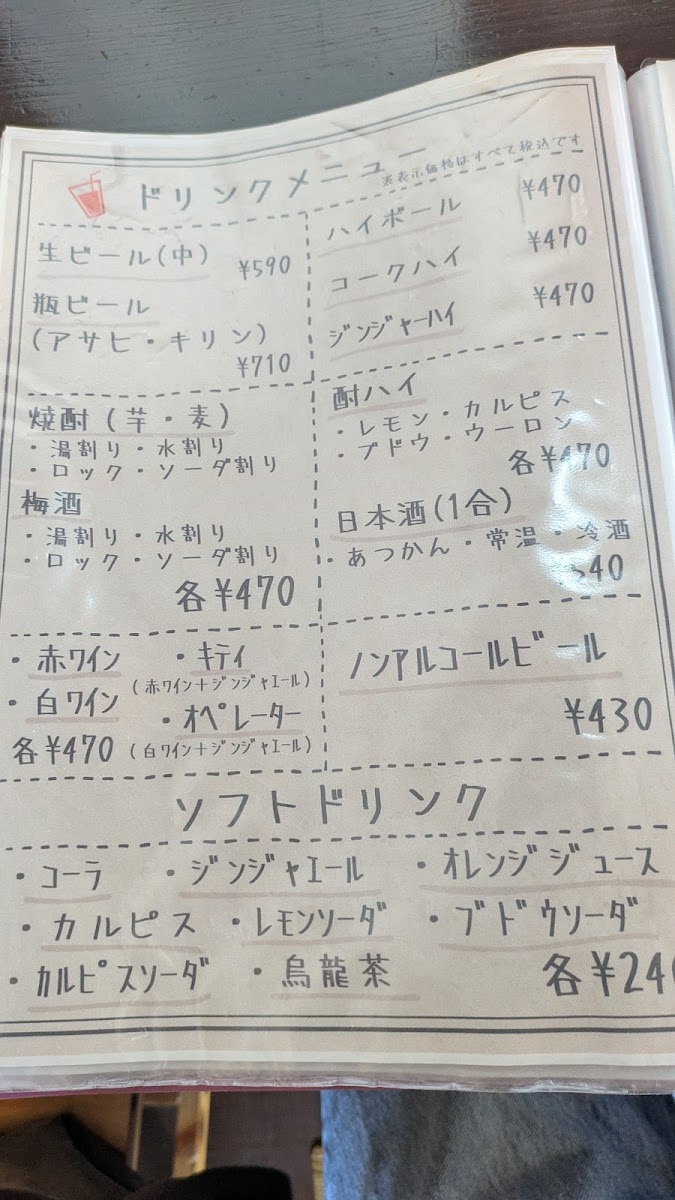 ドリンクメニュー
※表示価格はすべて税込です
生ビール(中)
¥590
瓶ビール
(アサヒ・キリン)
¥710
ハイボール
¥470
コークハイ
¥470
ジンジャーハイ
¥470
焼酎(芋・麦)
・湯割り・水割り
・ロック・ソーダ割り
梅酒
・湯割り・水割り
・ロック・ソーダ割り
各¥470
酎ハイ
・レモン・カルピス
・ブドウ・ウーロン
各¥470
日本酒(1合)
・あつかん・常温・冷酒
540
・赤ワイン ・キティ
(赤ワイン+ジンジャエール)
・白ワイン ・オペレーター
各¥470 (白ワイン+ジンジャエール)
ノンアルコールビール
¥430
ソフトドリンク
・コーラ ・ジンジャエール ・オレンジジュース
・カルピス ・レモンソーダ ・ブドウソーダ
・カルピスソーダ ・烏龍茶 各¥240